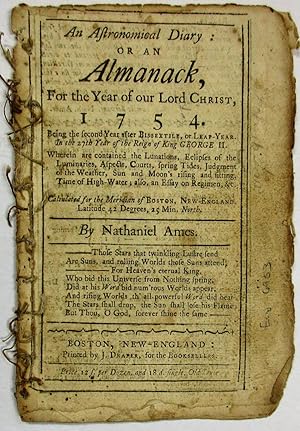 An Astronomical Diary:
OR AN
Almanack,
For the Year of our Lord CHRIST,
1754.
Being the second Year after BISSEXTILE, or LEAP-YEAR.
In the 27th Year of the Reign of King GEORGE II.
Wherein are contained the Lunations, Eclipses of the
Luminaries, Aspects, Courts, Spring Tides, Judgment
of the Weather, Sun and Moon's rising and setting,
Time of High-Water; also, an Essay on Regimen, &c
Calculated for the Meridian of BOSTON, NEW-ENGLAND.
Latitude 42 Degrees, 25 Min. North.
By Nathaniel Ames.
Those Stars that twinkling Lustre send
Are Suns, and rolling Worlds those Suns attend;
For Heaven's eternal King,
Who bid this Universe from Nothing spring,
Did at his Word bid num'rous Worlds appear,
And rising Worlds th' all-powerful Word did hear
The Stars shall drop, the Sun shall lose his Flame
But Thou, O God, forever shine the same
BOSTON, NEW-ENGLAND:
Printed by J. DRAPER, for the BOOKSELLERS.
Price, per Dozen, and 18 d. single, Old Tenor